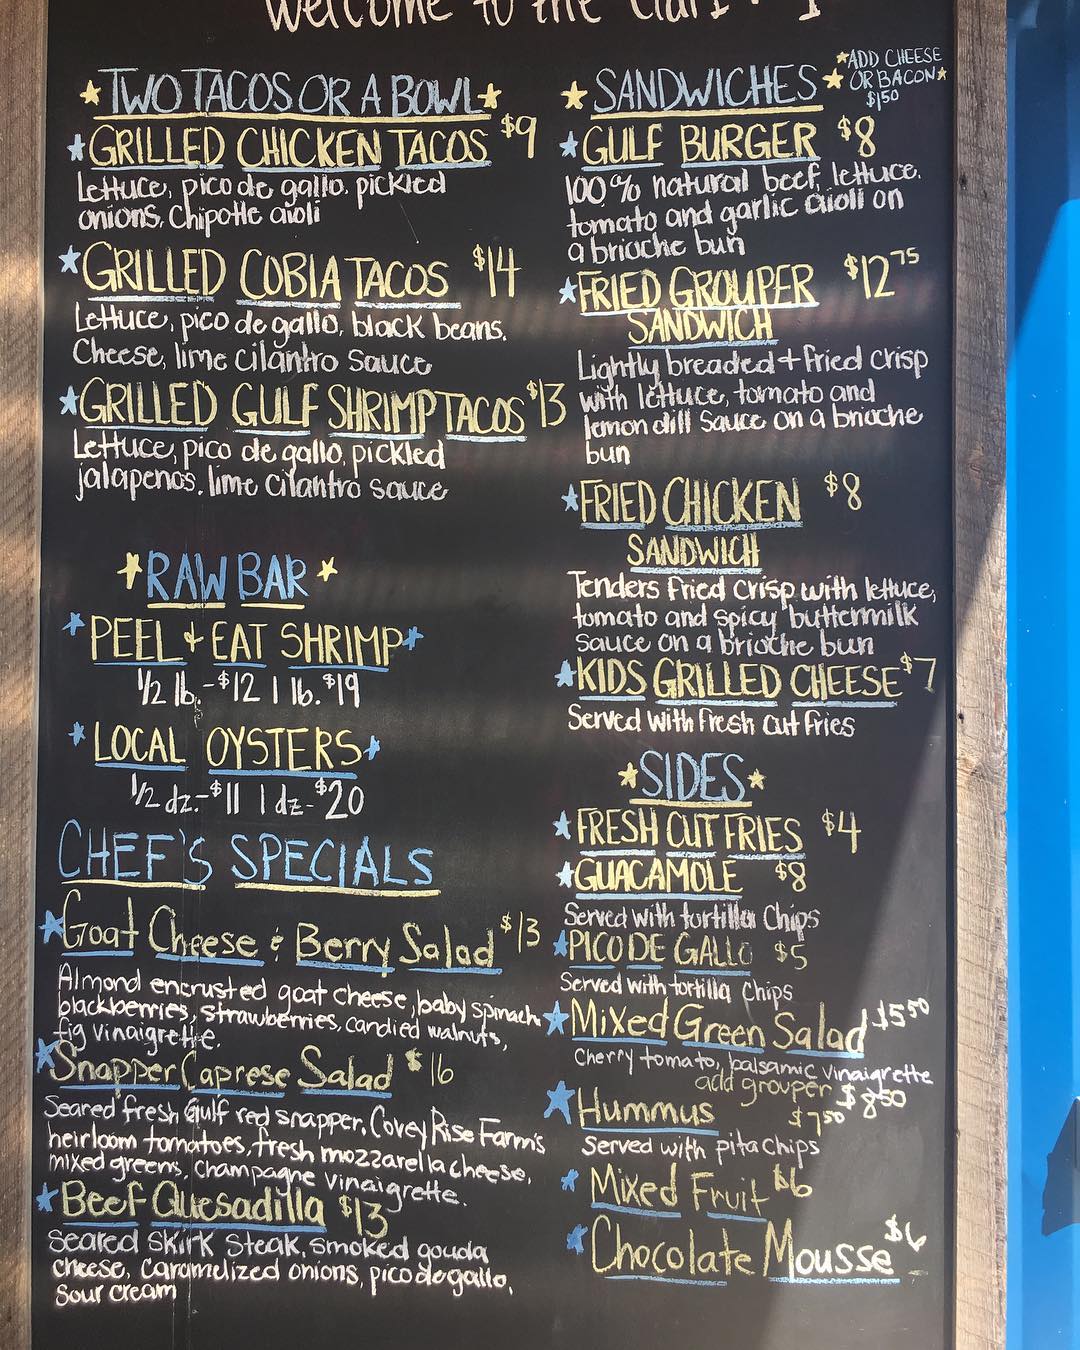 Welcome to the
★TWO TACOS OR A BOWL★
★GRILLED CHICKEN TACOS $9
Lettuce, pico de gallo, pickled
onions, Chipotle aioli
★GRILLED COBIA TACOS $14
Lettuce, pico de gallo, black beans,
Cheese, lime cilantro sauce
★GRILLED GULF SHRIMP TACOS $13
Lettuce, pico de gallo, pickled
jalapenos, lime cilantro sauce
★RAW BAR★
★PEEL + EAT SHRIMP★
1/2 lb.-$12 1 lb. $19
★LOCAL OYSTERS★
1/2 dz.-$11 1 dz-$20
CHEF'S SPECIALS
★Goat Cheese & Berry Salad $13
Almond encrusted goat cheese, baby spinach,
blackberries, strawberries, candied walnuts,
fig vinaigrette.
★Snapper Caprese Salad $16
Seared fresh Gulf red snapper, Covey Rise Farm's
heirloom tomatoes, fresh mozzarella cheese,
mixed greens, champagne vinaigrette.
★Beef Quesadilla $13
Seared skirk steak, smoked gouda
cheese, caramelized onions, pico de gallo,
sour cream
★SANDWICHES★
★ADD CHEESE
OR BACON★
$1.50
★GULF BURGER $8
100% natural beef, lettuce,
tomato and garlic aioli on
a brioche bun
★FRIED GROUPER $12.75
SANDWICH
Lightly breaded + fried crisp
with lettuce, tomato and
lemon dill sauce on a brioche
bun
★FRIED CHICKEN $8
SANDWICH
Tenders fried crisp with lettuce,
tomato and spicy buttermilk
sauce on a brioche bun
★KIDS GRILLED CHEESE $7
Served with fresh cut fries
★SIDES★
★FRESH CUT FRIES $4
★GUACAMOLE $8
Served with tortilla chips
★PICO DE GALLO $5
Served with tortilla chips
★Mixed Green Salad $5.50
Cherry tomato, balsamic vinaigrette
add grouper $8.50
★Hummus $7.50
Served with pita chips
★Mixed Fruit $6
★Chocolate Mousse $6